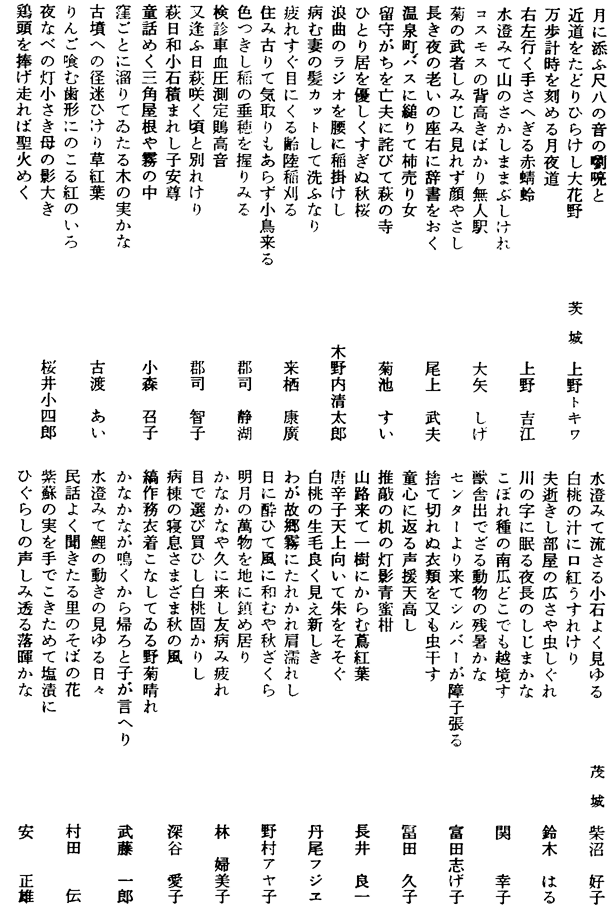 月に添ふ尺八の音の劉喨と
近道をたどりひらけし大花野
茨城 上野トキワ
万歩計時を刻める月夜道
右左行く手さへぎる赤蜻蛉
上野 吉江
水澄みて山のさかしままぶしけれ
コスモスの背高きばかり無人駅
大矢 しげ
菊の武者しみじみ見れず顔やさし
長き夜の老いの座右に辞書をおく
尾上 武夫
温泉町バスに縋りて柿売り女
留守がちを亡夫に詫びて萩の寺
菊池 すい
ひとり居を優しくすぎぬ秋桜
浪曲のラジオを腰に稲掛けし
木野内清太郎
病む妻の髪カットして洗ふなり
疲れすぐ目にくる齢陸稲刈る
来栖 康廣
住み古りて気取りもあらず小鳥来る
色つきし稲の垂穂を握りみる
郡司 静湖
検診車血圧測定鵙高音
又逢ふ日萩咲く頃と別れけり
郡司 智子
萩日和小石積まれし子安尊
童話めく三角屋根や霧の中
小森 召子
窪ごとに溜りてゐたる木の実かな
古墳への径迷ひけり草紅葉
古渡 あい
りんご喰む歯形にのこる紅のいろ
夜なべの灯小さき母の影大き
桜井小四郎
鶏頭を捧げ走れば聖火めく
水澄みて流さる小石よく見ゆる
茂城 柴沼 好子
白桃の汁に口紅うすれけり
夫逝きし部屋の広さや虫しぐれ
鈴木 はる
川の字に眠る夜長のしじまかな
こぼれ種の南瓜どこでも越境す
関 幸子
獣舎出でざる動物の残暑かな
センターより来てシルバーが障子張る
富田志げ子
捨て切れぬ衣類を又も虫干す
童心に返る声援天高し
冨田 久子
推敲の机の灯影青蜜柑
山路来て一樹にからむ蔦紅葉
長井 良一
唐辛子天上向いて朱をそそぐ
白桃の生毛良く見え新しき
丹尾フジエ
わが故郷霧にたれかれ肩濡れし
日に酔ひて風に和むや秋ざくら
野村アヤ子
明月の萬物を地に鎮め居り
かなかなや久に来し友病み疲れ
林 婦美子
目で選び買ひし白桃固かりし
病棟の寝息さまざま秋の風
深谷 愛子
縞作務衣着こなしてゐる野菊晴れ
かなかなが鳴くから帰ろと子が言へり
武藤 一郎
水澄みて鯉の動きの見ゆる日々
民話よく聞きたる里のそばの花
村田 伝
紫蘇の実を手でこきためて塩漬に
ひぐらしの声しみ透る落暉かな
安 正雄